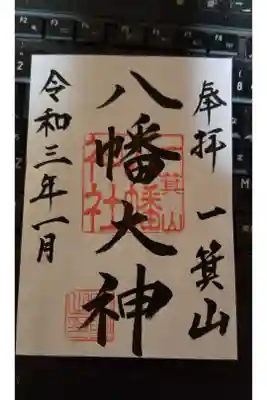 奉拝 一箕山
八幡大神
令和三年一月
一箕山
八幡
神社